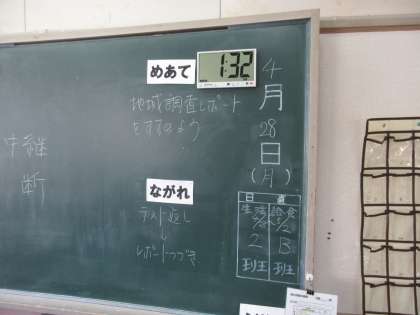 めあて
1:32
4
月
28
日
(月)
地域調査レポート
をすすめよう
中継
断
ながれ
テスト返し
↓
レポートつづき
日直
生活 給食
2 B
班 班